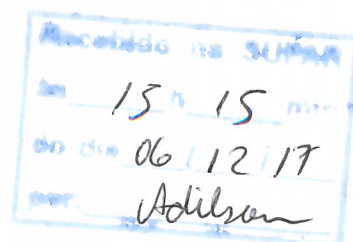 Recebido na SUPAR
às 15 h 15 min.
do dia 06 / 12 / 17
por: Adilson